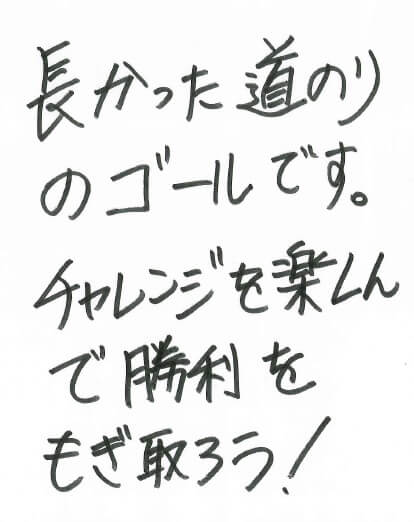 長かった道のり
のゴールです。
チャレンジを楽しん
で勝利を
もぎ取ろう!